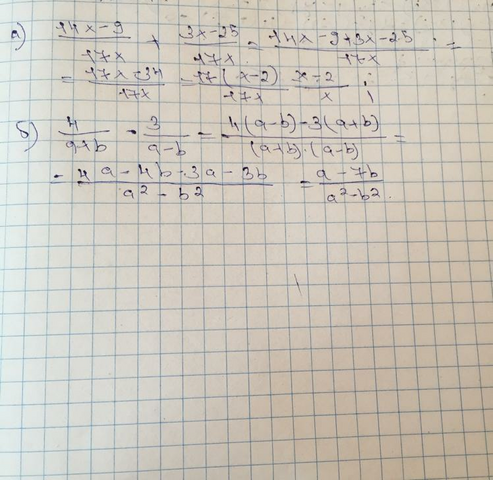 а) (14x-9)/(17x) + (3x-25)/(17x) = (14x-9+3x-25)/(17x) =
= (17x-34)/(17x) = (17(x-2))/(17x) (x-2)/x ;
б) 4/(a+b) - 3/(a-b) = (4(a-b)-3(a+b))/((a+b)·(a-b)) =
= (4a-4b-3a-3b)/(a²-b²) = (a-7b)/(a²-b²).